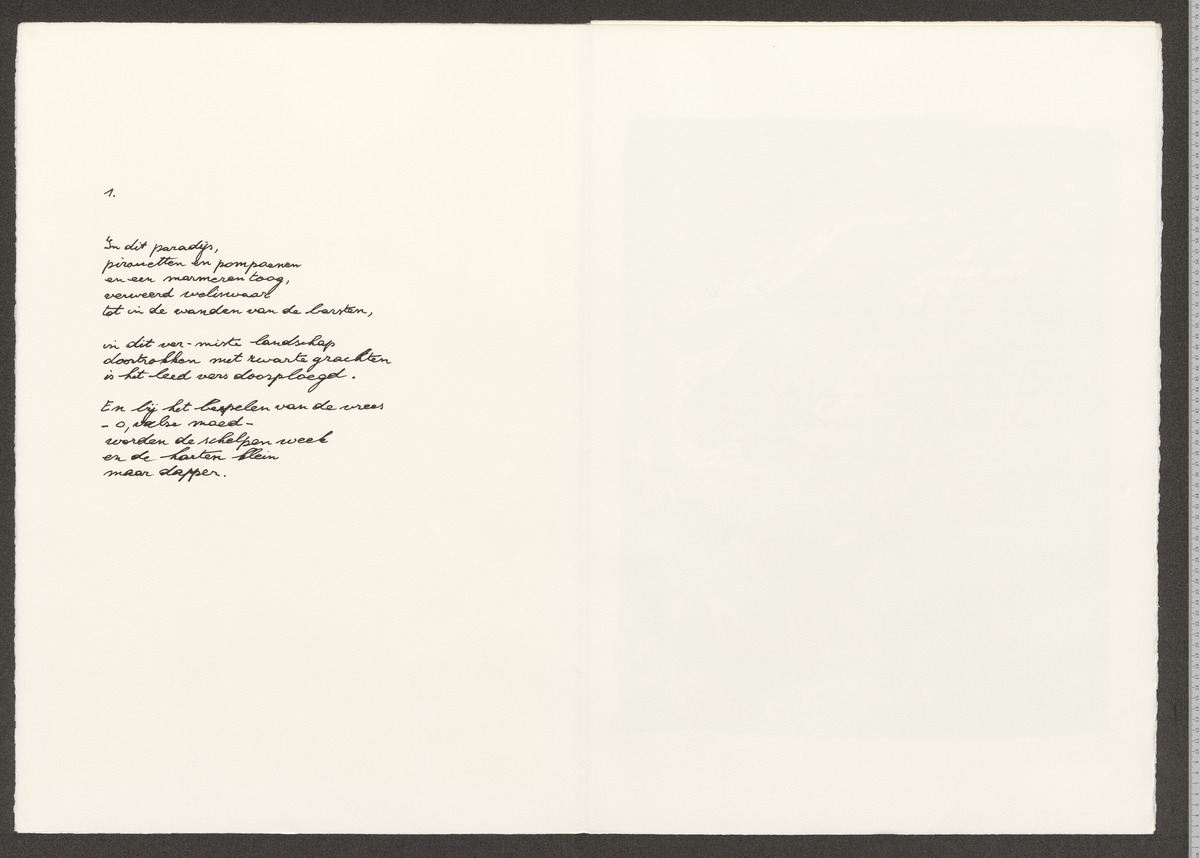 1.
In dit paradijs,
pirouetten en pompoenen
en een marmeren toog,
verweerd weliswaar
tot in de wanden van de barsten,
in dit ver-miste landschap
doortrokken met zwarte grachten
is het leed vers doorploegd.
En bij het bespelen van de vrees
- o, valse moed -
worden de schelpen week
en de harten klein
maar dapper.